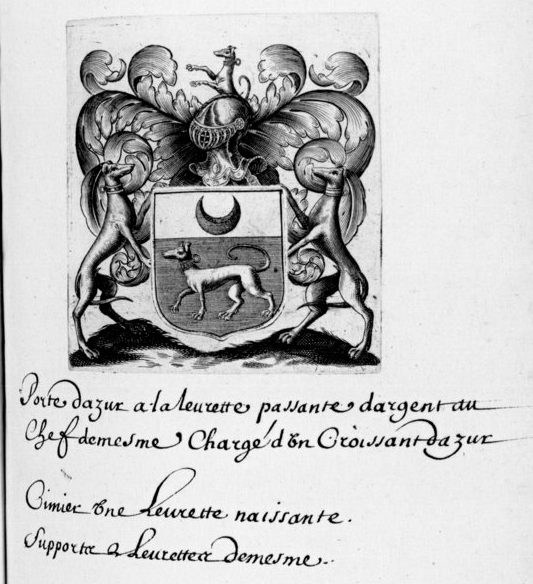 Porte dazur a la leurette passante dargent au
Chef demesme Chargé d'un Croissant dazur
Cimier une Leurette naissante.
Supportz 2 Leurettez demesme.